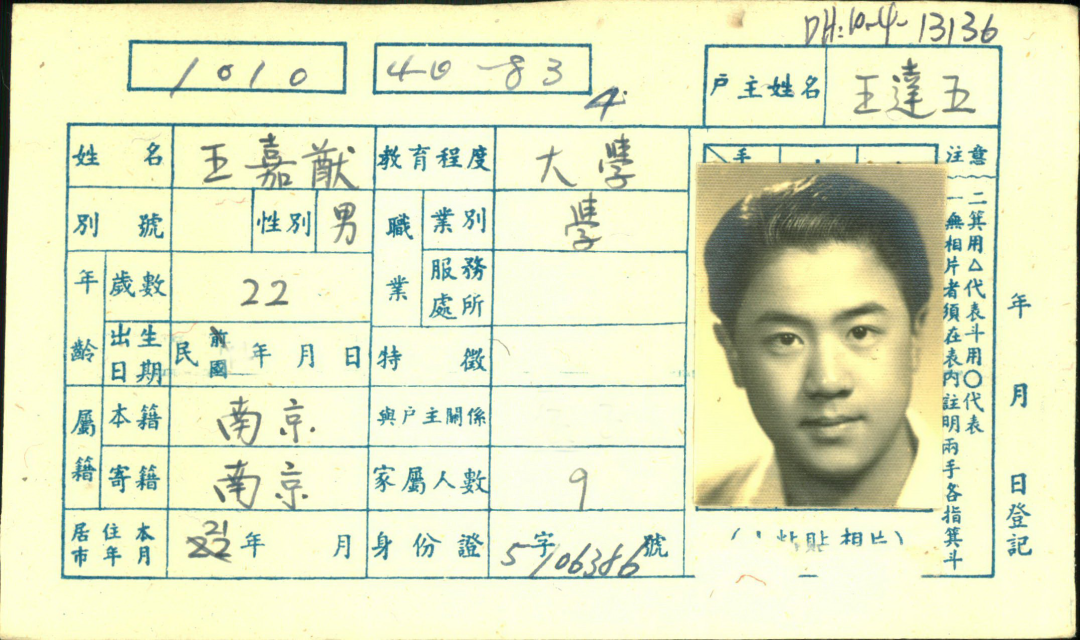 DH:10-4-13136
1010
40-83
4
户主姓名 王達五
姓名 王嘉猷 教育程度 大學
別號 性別 男 職業 業別 學
年齡 歲數 22 服務處所
出生日期 民前國 年 月 日 特徵
屬籍 本籍 南京 與户主關係
寄籍 南京 家屬人數 9
居住本市年月 21 年 月 身份證 5字106386號
手
注意
二箕用△代表斗用〇代表
一無相片者須在表内註明兩手各指箕斗
粘貼相片
年 月 日登記